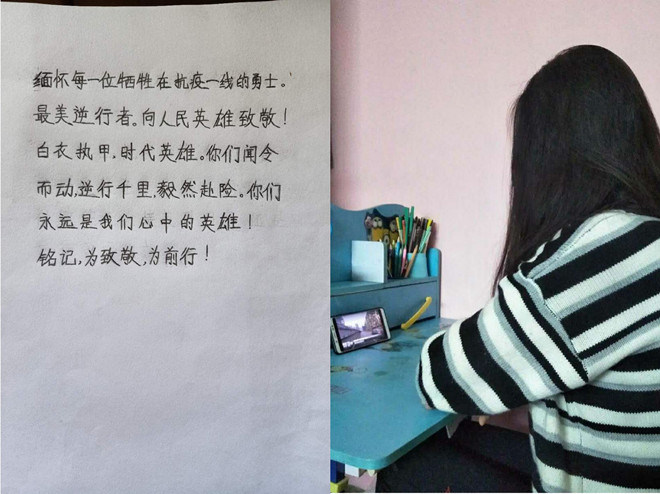 缅怀每一位牺牲在抗疫一线的勇士。
最美逆行者。向人民英雄致敬！
白衣执甲，时代英雄。你们闻令
而动，逆行千里，毅然赴险。你们
永远是我们心中的英雄！
铭记，为致敬，为前行！